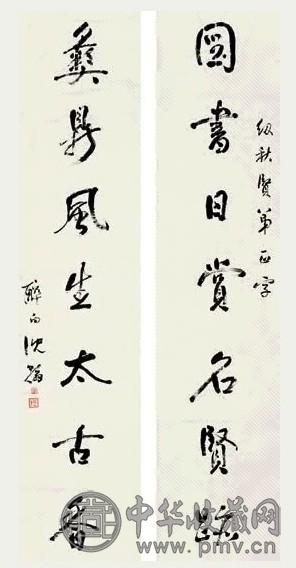 圖書日賞名賢
秋賢弟正字
彝鼎風生太古香
中华收藏网
www.pmv.cn